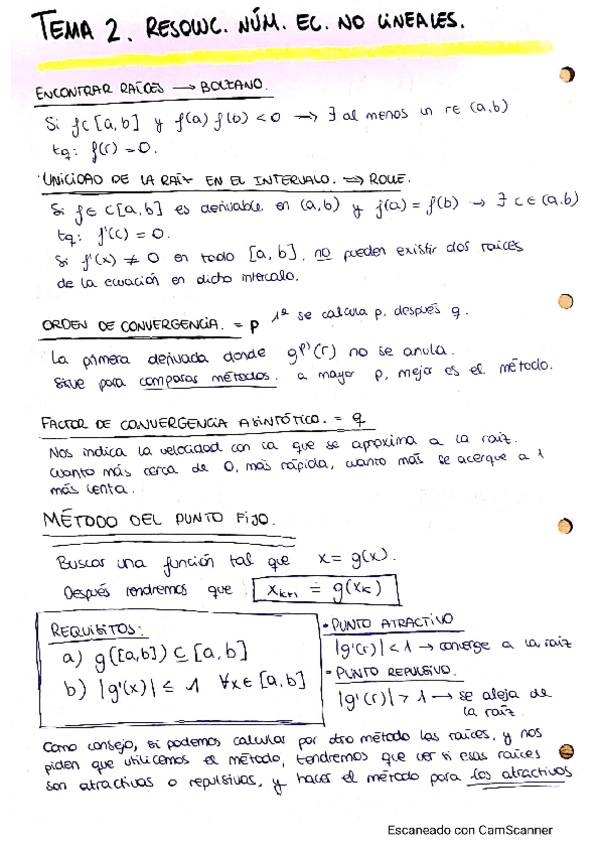 TEMA 2. RESOLUC. NÚM. EC. NO LINEALES.
ENCONTRAR RAÍCES → BOLZANO.
Si fC[a,b] y f(a) f(b) < 0 → ∃ al menos un r∈(a,b)
tq: f(r) = 0.
UNICIDAD DE LA RAÍZ EN EL INTERVALO. ⇒ ROLLE.
Si f∈C[a,b] es derivable en (a,b) y f(a) = f(b) → ∃ c∈(a,b)
tq: f'(c) = 0.
Si f'(x) ≠ 0 en todo [a,b], no pueden existir dos raíces
de la ecuación en dicho intervalo.
ORDEN DE CONVERGENCIA. = p 1º se calcula p, después q.
La primera derivada donde g^(p)(r) no se anula.
Sirve para comparar métodos. a mayor p, mejor es el método.
FACTOR DE CONVERGENCIA ASINTÓTICO. = q
Nos indica la velocidad con la que se aproxima a la raíz.
cuanto más cerca de 0, más rápida, cuanto más se acerque a 1
más lenta.
MÉTODO DEL PUNTO FIJO.
Buscar una función tal que x = g(x).
Después tendremos que x_{k+1} = g(x_k)
REQUISITOS:
a) g([a,b]) ⊆ [a,b]
b) |g'(x)| ≤ 1 ∀x∈[a,b]
• PUNTO ATRACTIVO
|g'(r)| < 1 → converge a la raíz
• PUNTO REPULSIVO.
|g'(r)| > 1 → se aleja de
la raíz.
Como consejo, si podemos calcular por otro método las raíces, y nos
piden que utilicemos el método, tendremos que ver si esas raíces
son atractivas o repulsivas, y hacer el método para las atractivas
Escaneado con CamScanner